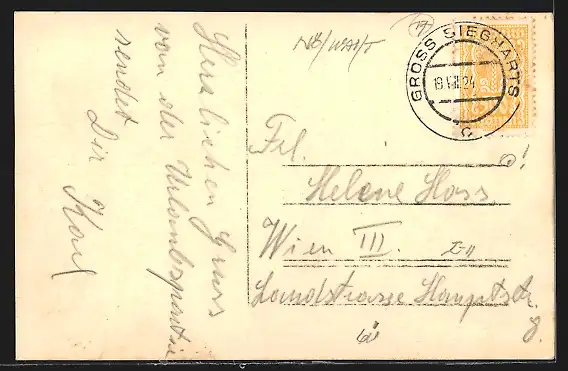 Herzlichen Gruss
von der Urlaubspartie
sendet
Dir Karl
NÖ/WALDV
GROSS SIEGHARTS
Frl.
Helene Hass
Wien III.
Landstrasse Hauptstr.